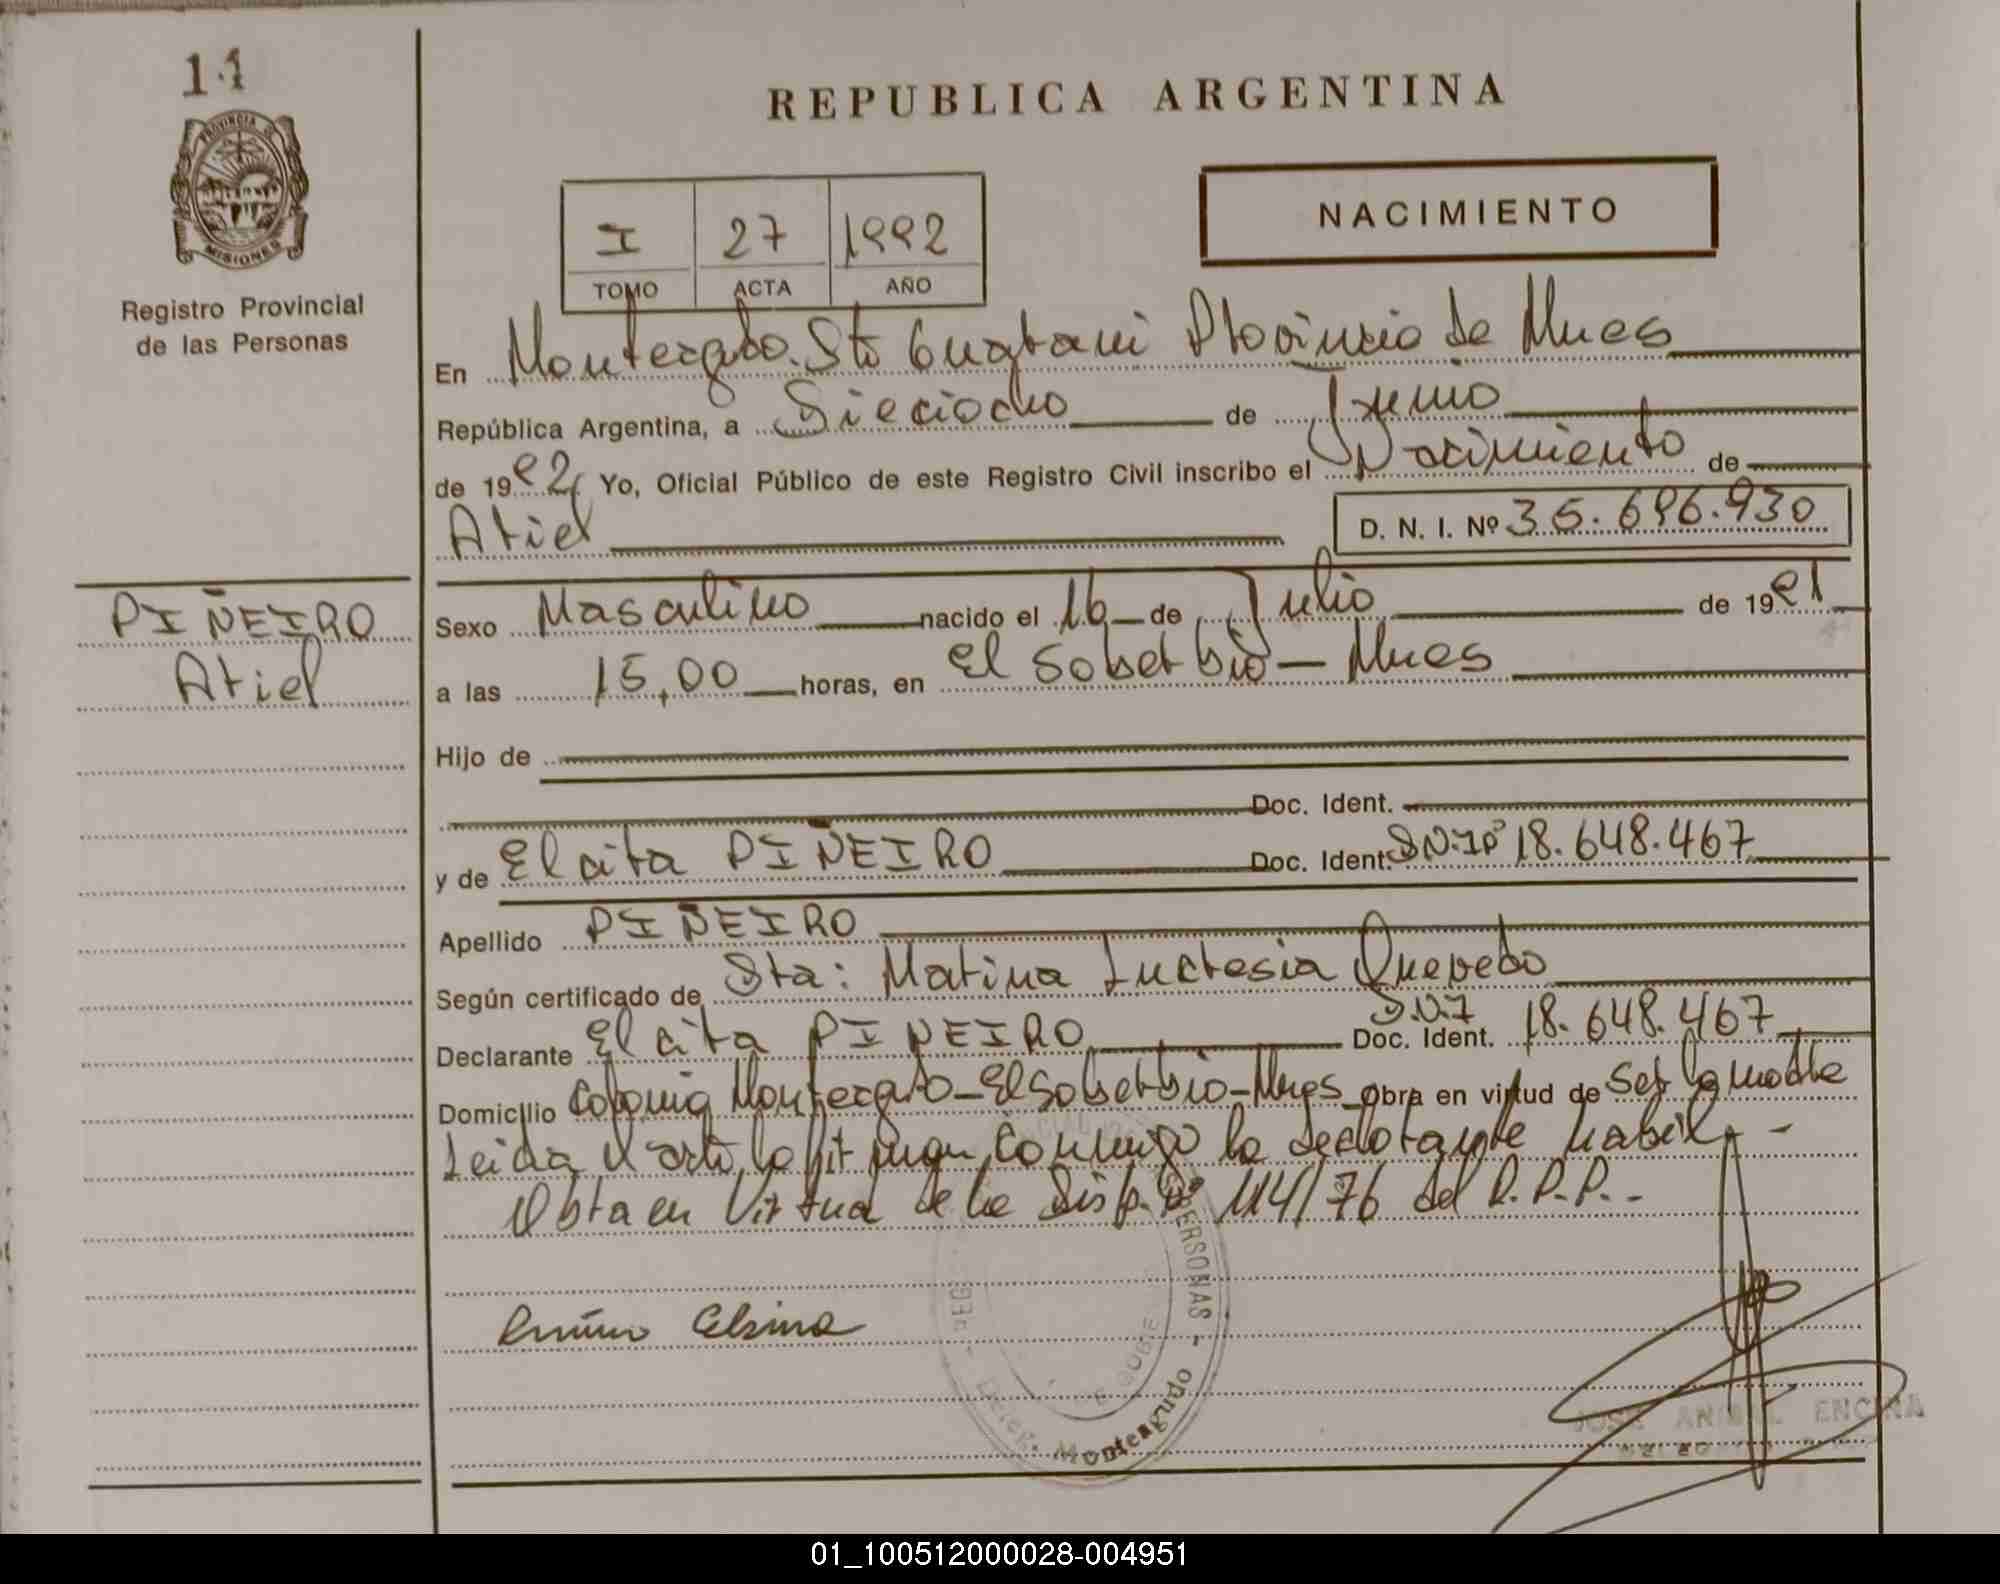 11
REPUBLICA ARGENTINA
PROVINCIA DE
MISIONES
Registro Provincial
de las Personas
I 27 1992
TOMO ACTA AÑO
NACIMIENTO
En Monteagudo. Dto Guarani Provincia de Mnes
República Argentina, a Dieciocho de Junio
de 1992 Yo, Oficial Público de este Registro Civil inscribo el Nacimiento de
Ariel
D. N. I. Nº 36.696.930
PIÑEIRO
Ariel
Sexo Masculino nacido el 16 de Julio de 1991
a las 15,00 horas, en El Soberbio - Mnes
Hijo de
Doc. Ident.
y de Elcira PIÑEIRO Doc. Ident. D.N.I Nº 18.648.467
Apellido PIÑEIRO
Según certificado de Sra: Marina Lucresia Quevedo
Declarante Elcira PIÑEIRO Doc. Ident. D.N.I 18.648.467
Domicilio Colonia Monteagudo - El Soberbio - Mnes Obra en virtud de Ser la madre
Leida el acta la firman conmigo la declarante habil. -
Obra en Virtud de la Disp. Nº 114/76 del R.P.P. -
PERSONAS -
Monteagudo
JOSE ANIBAL ENCINA
01_100512000028-004951